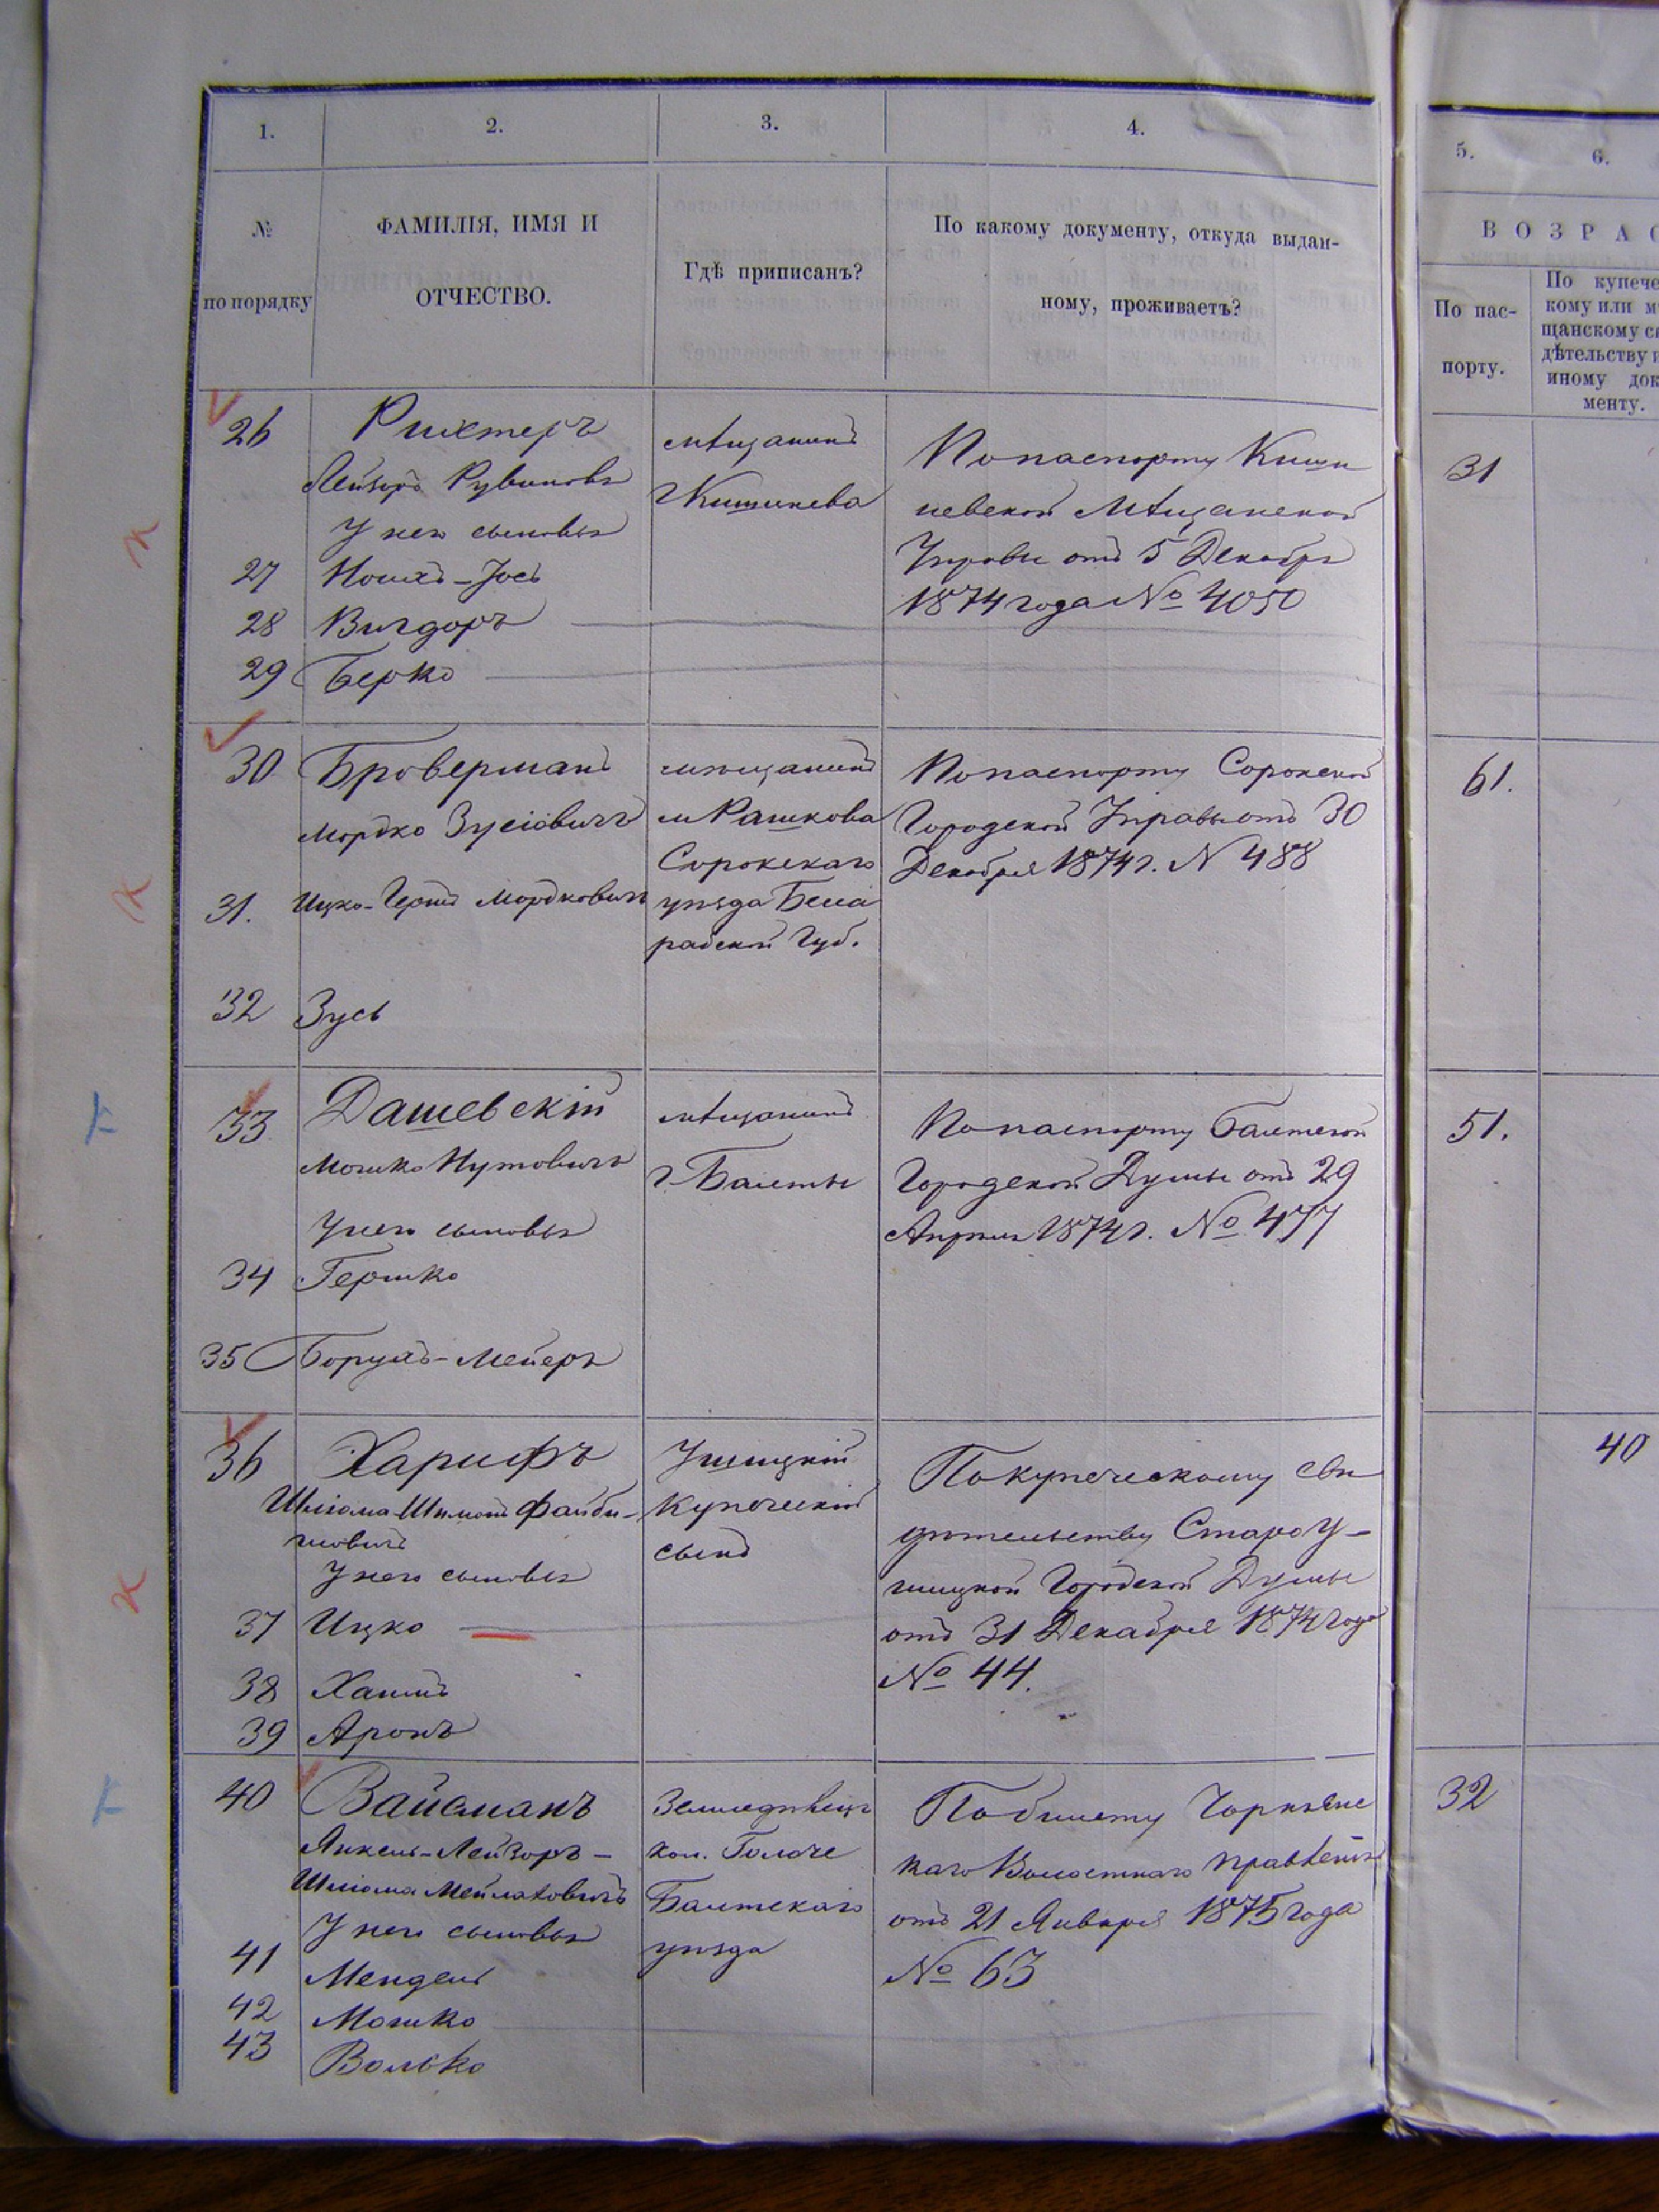 1.
2.
3.
4.
5.
6.
№
по порядку
ФАМИЛІЯ, ИМЯ И
ОТЧЕСТВО.
Гдѣ приписанъ?
По какому документу, откуда выдан-
ному, проживаетъ?
ВОЗРАС
По пас-
порту.
По купече
кому или м
щанскому с
дѣтельству и
иному док
менту.
26
Рихтеръ
Лейзоръ Рувиновъ
У него сыновья
27 Ноихъ-Іось
28 Вигдоръ
29 Берко
мѣщанинъ
г Кишинева
По паспорту Киши
невской Мѣщанской
Управы отъ 5 Декабря
1874 года № 4050
31
30 Броверманъ
Мордко Зусіовичъ
31. Ицко-Гершъ Мордковичъ
32 Зусь
мѣщанинъ
м Рашкова
Сорокскаго
уѣзда Бесса
рабской Губ.
По паспорту Сорокской
Городской Управы отъ 30
Декабря 1874 г. N 488
61.
33 Дашевскій
Мошко Нутовичъ
У него сыновья
34 Гершко
35 Борухъ-Мейеръ
мѣщанинъ
г Балты
По паспорту Балтской
Городской Думы отъ 29
Апрѣля 1874 г. № 477
51.
36 Харифъ
Шліома-Шимонъ Файби-
шовичъ
У него сыновья
37 Ицко
38 Хаимъ
39 Аронъ
Ушицкій
Купеческій
сынъ
По купеческому сви
дѣтельству СтароУ-
шицкой Городской Думы
отъ 31 Декабря 1874 года
№ 44.
40
40 Вайсманъ
Янкель-Лейзоръ-
Шліома Мейлаховичъ
У него сыновья
41 Мендель
42 Мошко
43 Волько
Земледѣлецъ
кол.
Балтскаго
уѣзда
По билету
каго Волостнаго Правленія
отъ 21 Января 1875 года
№ 63
32